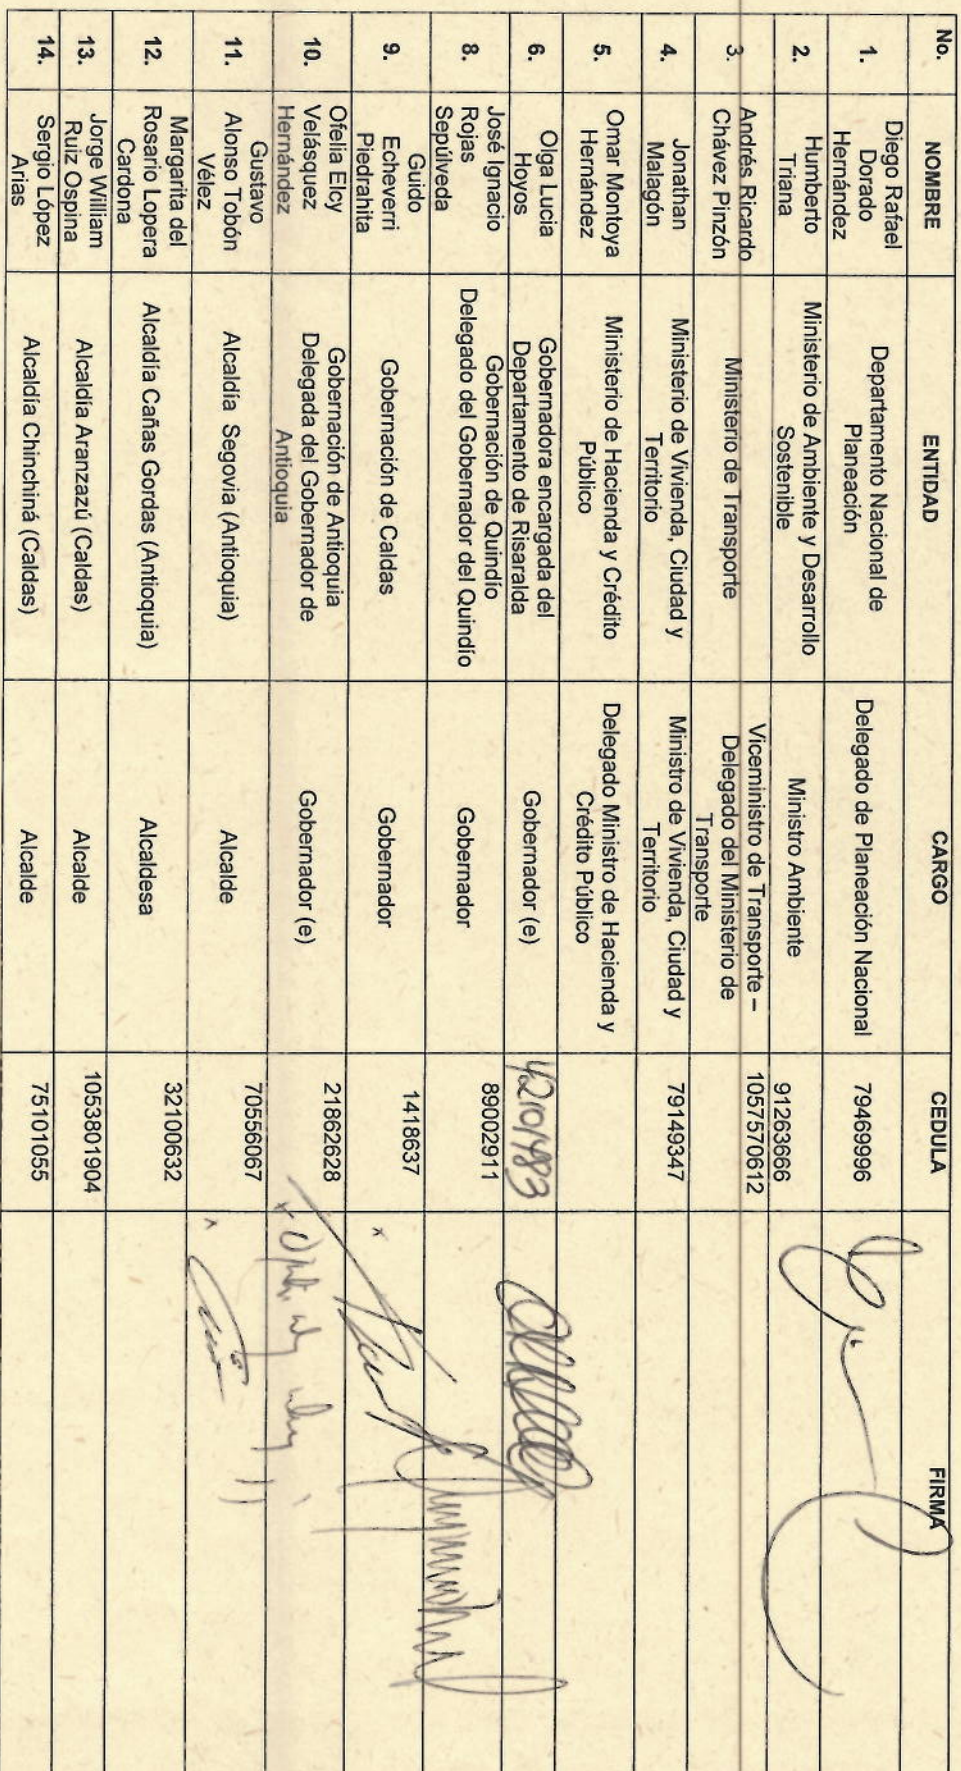 No. NOMBRE ENTIDAD CARGO CEDULA FIRMA
1.
Diego Rafael
Dorado
Hernández
Departamento Nacional de
Planeación
Delegado de Planeación Nacional
79469996
2.
Humberto
Triana
Ministerio de Ambiente y Desarrollo
Sostenible
Ministro Ambiente
91263666
3.
Andrés Ricardo
Chávez Pinzón
Ministerio de Transporte
Viceministro de Transporte –
Delegado del Ministerio de
Transporte
1057570612
4.
Jonathan
Malagón
Ministerio de Vivienda, Ciudad y
Territorio
Ministro de Vivienda, Ciudad y
Territorio
79149347
5.
Omar Montoya
Hernández
Ministerio de Hacienda y Crédito
Público
Delegado Ministro de Hacienda y
Crédito Público
6.
Olga Lucia
Hoyos
Gobernadora encargada del
Departamento de Risaralda
Gobernador (e)
42101483
8.
José Ignacio
Rojas
Sepúlveda
Gobernación de Quindío
Delegado del Gobernador del Quindío
Gobernador
89002911
9.
Guido
Echeverri
Piedrahita
Gobernación de Caldas
Gobernador
1418637
x
10.
Ofelia Elcy
Velásquez
Hernández
Gobernación de Antioquia
Delegada del Gobernador de
Antioquia
Gobernador (e)
21862628
x
11.
Gustavo
Alonso Tobón
Vélez
Alcaldía Segovia (Antioquia)
Alcalde
70556067
12.
Margarita del
Rosario Lopera
Cardona
Alcaldía Cañas Gordas (Antioquia)
Alcaldesa
32100632
13.
Jorge William
Ruiz Ospina
Alcaldía Aranzazú (Caldas)
Alcalde
1053801904
14.
Sergio López
Arias
Alcaldía Chinchiná (Caldas)
Alcalde
75101055